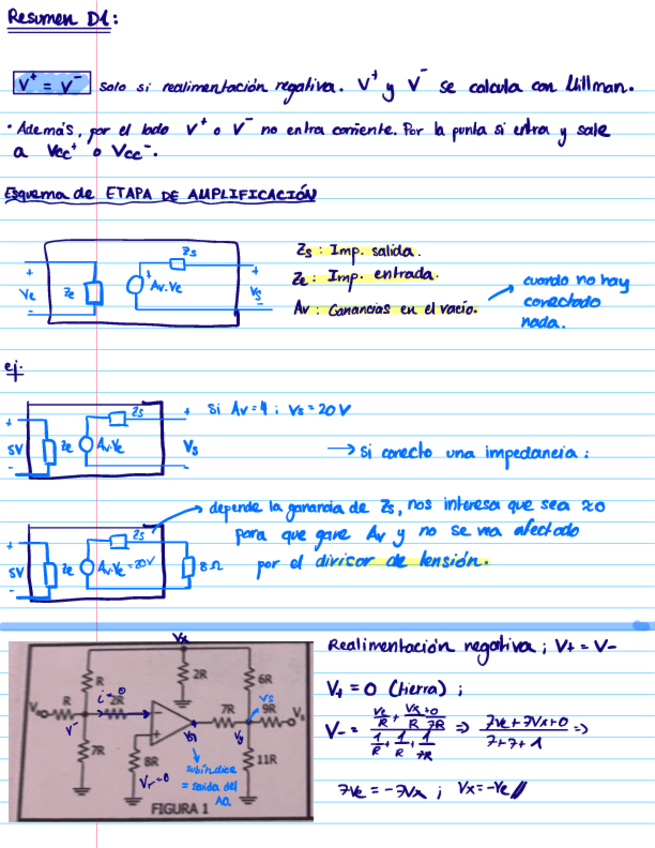 Resumen D1:
V⁺ = V⁻ solo si realimentación negativa. V⁺ y V⁻ se calcula con Millman.
• Además, por el lado V⁺ o V⁻ no entra corriente. Por la punta si entra y sale
a Vcc⁺ o Vcc⁻.
Esquema de ETAPA DE AMPLIFICACIÓN
+ Ve - Ze Av.Ve Zs + Vs -
Zs: Imp. salida.
Ze: Imp. entrada.
Av: Ganancias en el vacío.
cuando no hay
conectado
nada.
ej:
+ 5V - Ze Av.Ve Zs + Vs -
Si Av=4; Vs=20V
→ Si conecto una impedancia:
depende la ganancia de Zs, nos interesa que sea ≈0
para que gane Av y no se vea afectado
por el divisor de tensión.
+ 5V - Ze Av.Ve=20V Zs 8Ω
Vx
R 2R 6R
i=0 2R
R 7R Vs 9R
V⁻
7R 8R 11R
V+=0
subíndice
= salida del
AO.
FIGURA 1
Realimentación negativa; V+ = V-
V+ = 0 (tierra);
V- = (Ve/R + Vx/R + 0/7R) / (1/R + 1/R + 1/7R) ⇒ (7Ve+7Vx+0) / (7+7+1) ⇒
7Ve = -7Vx; Vx=-Ve//